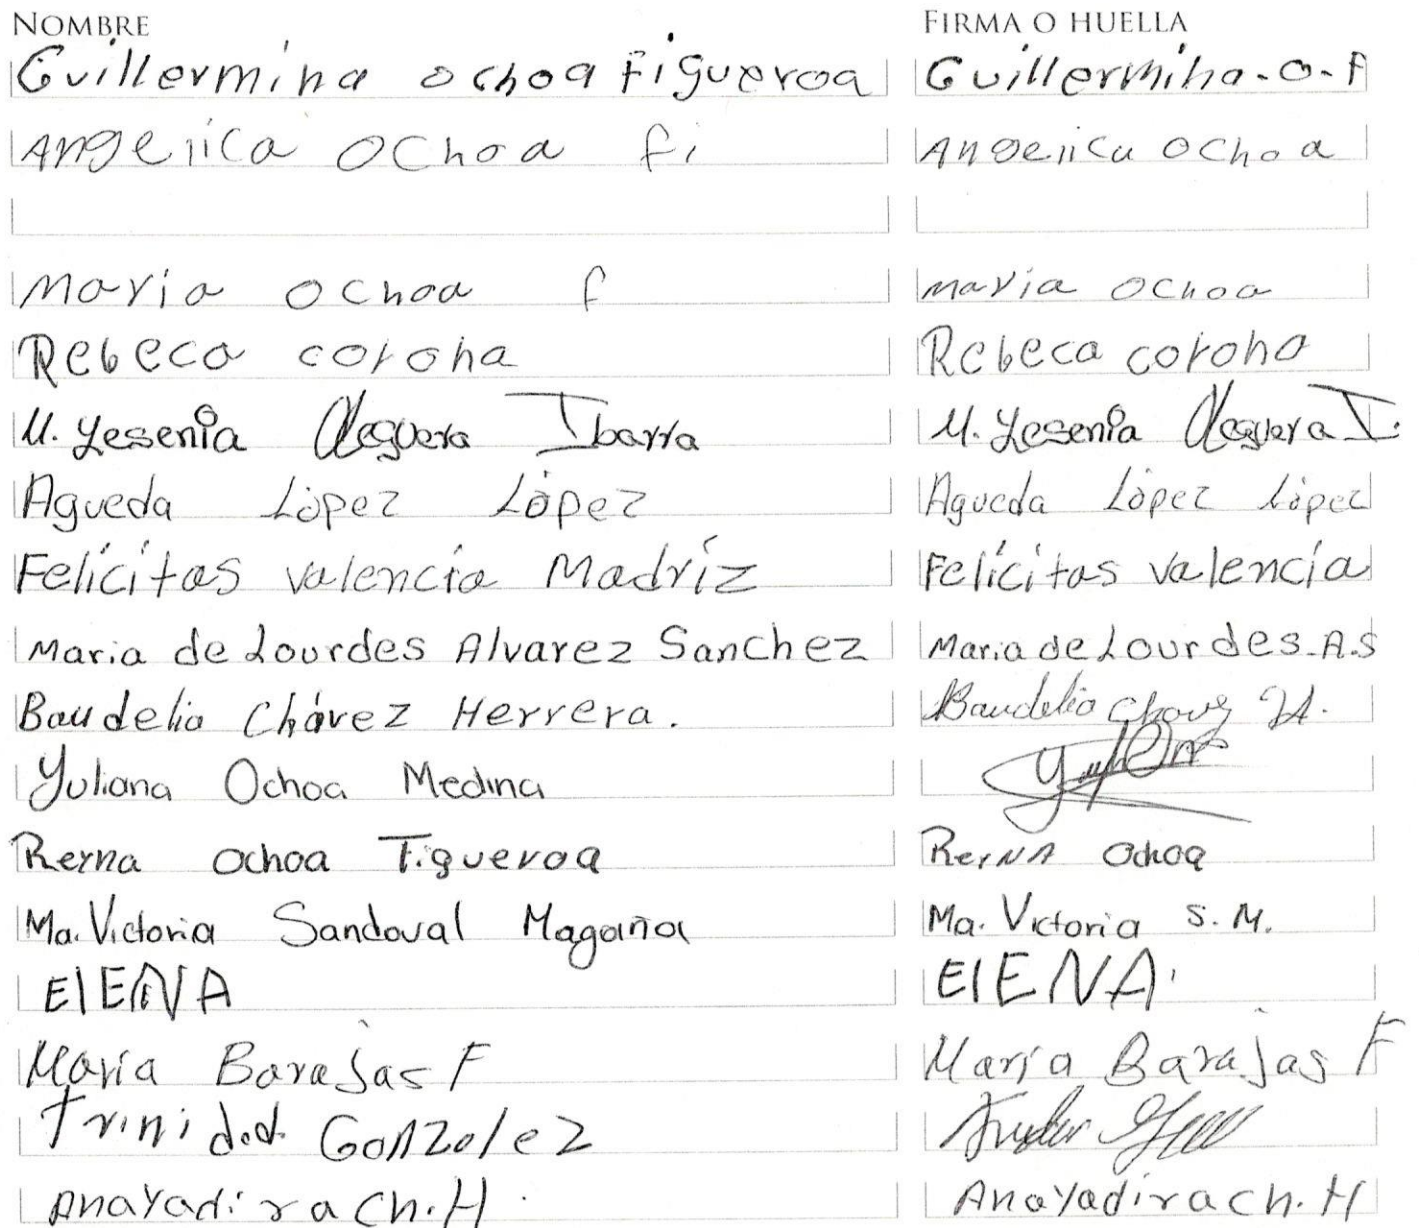 NOMBRE FIRMA O HUELLA
Guillermina ochoa Figueroa Guillermina-O-F
Angelica Ochoa fi Angelica Ochoa
maria ochoa f maria ochoa
Rebeca corona Rebeca corona
M. Yesenia Oleguera Ibarra M. Yesenia Oleguera I.
Agueda López López Agueda López López
Felícitas valencia Madríz Felícitas valencía
Maria de Lourdes Alvarez Sanchez Maria de Lourdes.A.S
Baudelia Chávez Herrera. Baudelia Chavez H.
Yuliana Ochoa Medina
Rerna ochoa Figueroa RerNA Ochoa
Ma. Victoria Sandoval Magaña Ma. Victoria S.M.
ElENA ElENA
María Barajas F María Barajas F
Trinidad Gonzalez
AnaYadira Ch.H. AnaYadira ch.H